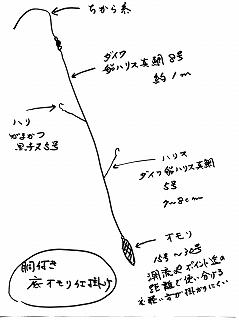 ちから糸
ダイワ
船ハリス真鯛 8号
約1m
ハリ
がまかつ
黒チヌ5号
ハリス
ダイワ船ハリス真鯛
5号
7〜8cm
オモリ
15号〜30号
潮流やポイント迄の
距離で使い分ける
軽い方が掛かりにくい
胴付き
底オモリ仕掛け